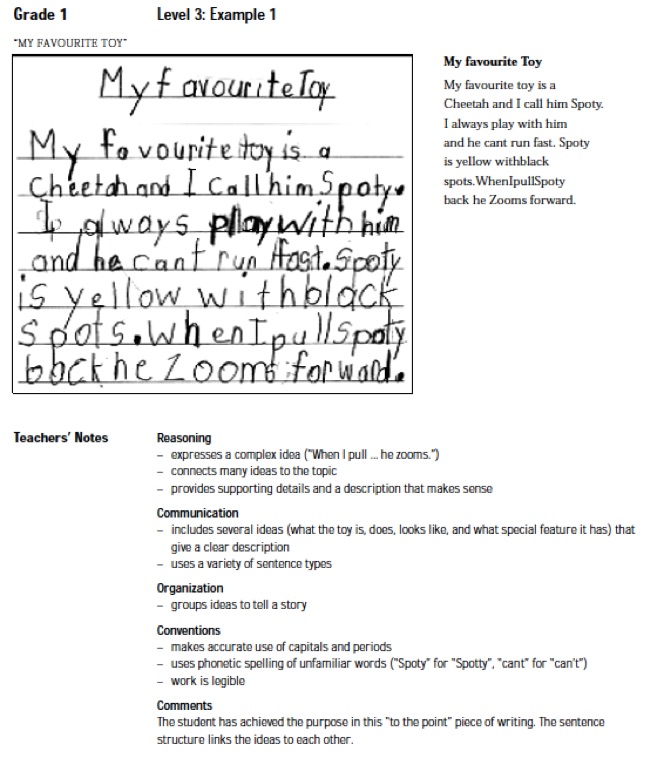 Grade 1 Level 3: Example 1
"MY FAVOURITE TOY"
My favourite Toy
My favourite toy is a
Cheetah and I Call him Spoty.
I always play with him
and he cant run fast. Spoty
is yellow withblack
spots. When I pull Spoty
back he Zooms forward.
My favourite Toy
My favourite toy is a
Cheetah and I call him Spoty.
I always play with him
and he cant run fast. Spoty
is yellow withblack
spots.WhenIpullSpoty
back he Zooms forward.
Teachers' Notes
Reasoning
– expresses a complex idea ("When I pull ... he zooms.")
– connects many ideas to the topic
– provides supporting details and a description that makes sense
Communication
– includes several ideas (what the toy is, does, looks like, and what special feature it has) that
give a clear description
– uses a variety of sentence types
Organization
– groups ideas to tell a story
Conventions
– makes accurate use of capitals and periods
– uses phonetic spelling of unfamiliar words ("Spoty" for "Spotty", "cant" for "can't")
– work is legible
Comments
The student has achieved the purpose in this "to the point" piece of writing. The sentence
structure links the ideas to each other.